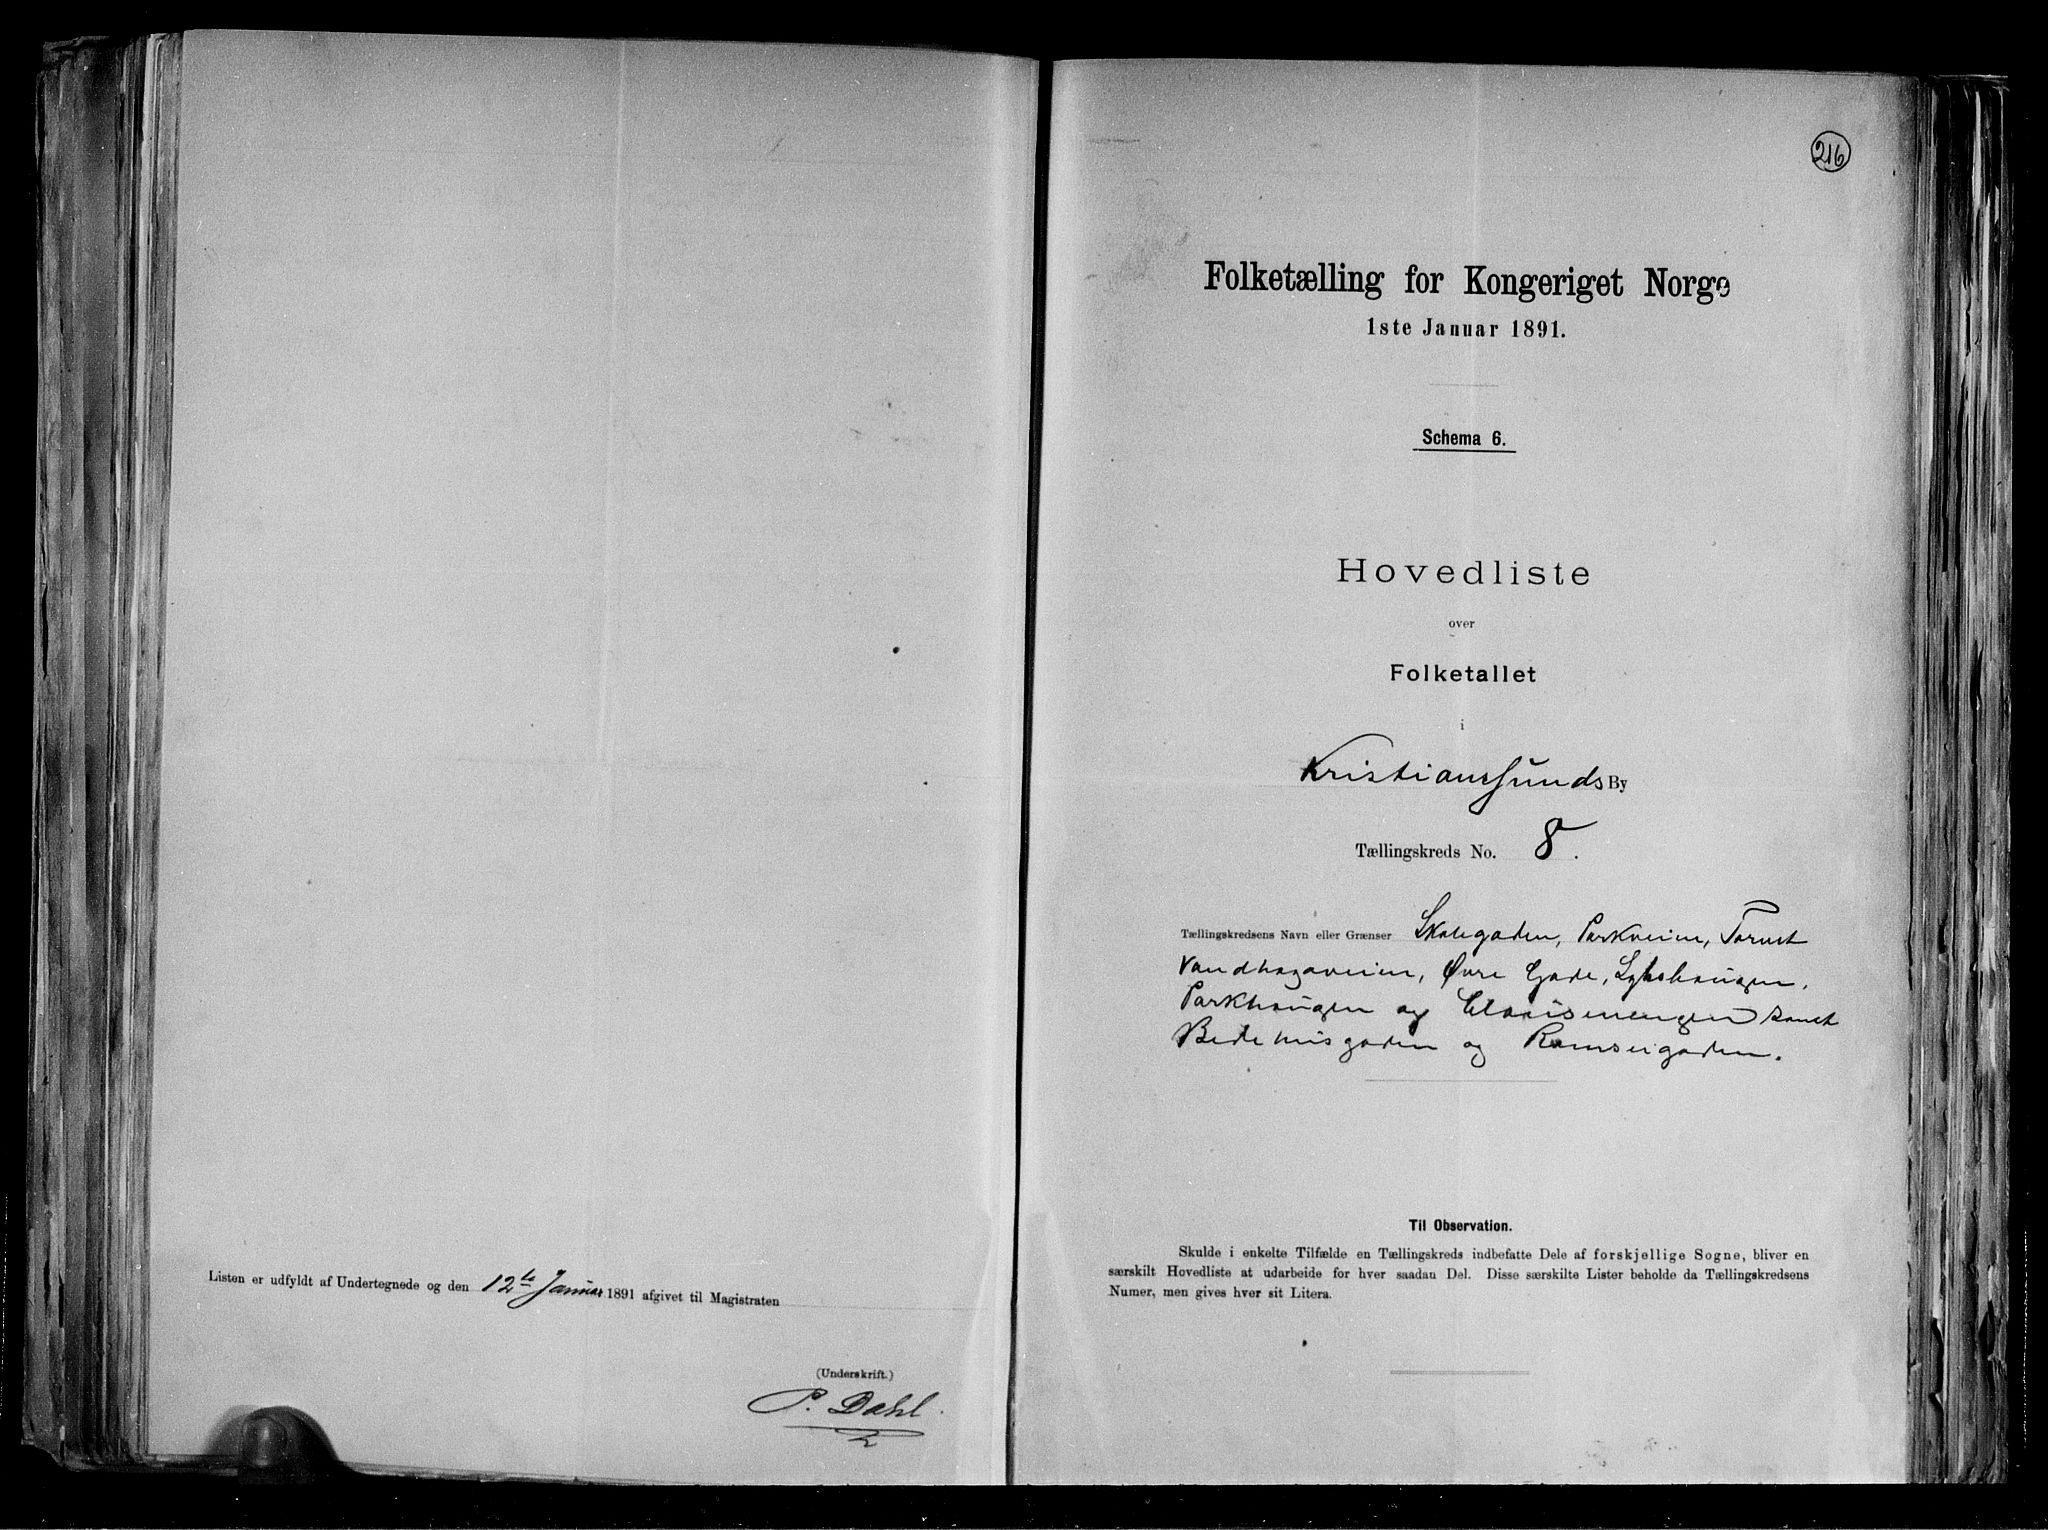 Listen er udfyldt af Undertegnede og den 12te Januar 1891 afgivet til Magistraten
(Underskrift.)
P. Dahl.
216
Folketælling for Kongeriget Norge
1ste Januar 1891.
Schema 6.
Hovedliste
over
Folketallet
i
Kristianssunds By
Tællingskreds No. 8.
Tællingskredsens Navn eller Grænser Skolegaden, Parkveien, Tornet
Vandhagaveien, Øvre Gade, Lykshaugen,
Parkhaugen og Clausenengen samt
Bedehusgaden og Ramsøigaden.
Til Observation.
Skulde i enkelte Tilfælde en Tællingskreds indbefatte Dele af forskjellige Sogne, bliver en
særskilt Hovedliste at udarbeide for hver saadan Del. Disse særskilte Lister beholde da Tællingskredsens
Numer, men gives hver sit Litera.